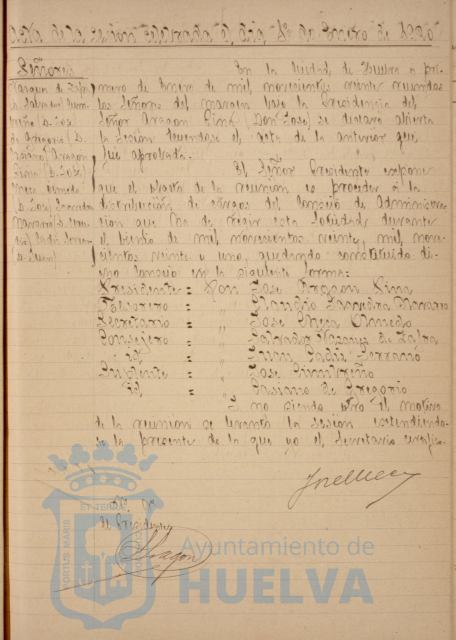 Acta de la sesion celebrada el dia 1º de Enero de 1920
Señores
Vazquez de Zafra
Salvador
(D. José)
de Gregorio (D.
Aragon
Pina (D. José)
Mesa Olmedo
(D. José) Saavedra
Navarro (D.
Cadiz Serrano
(D. Juan)
En la ciudad de Huelva a pri
mero de Enero de mil novecientos veinte reunidos
los Señores del margen bajo la Presidencia del
Señor Aragon Pina (Don José) se declaró abierta
la sesion leyendose el acta de la anterior que
fue aprobada.
El Señor Presidente expone
que el objeto de la reunion es proceder á la
distribucion de cargos del Consejo de Administra
cion que ha de regir esta Sociedad durante
el bienio de mil novecientos veinte, mil nove
cientos veinte y uno, quedando constituido di
cho Consejo en la siguiente forma:
Presidente = Don José Aragon Pina
Tesorero = " Claudio Saavedra Navarro
Secretario = " José Mesa Olmedo
Consejero = " Salvador Vazquez de Zafra
id = " Juan Cadiz Serrano
Suplente = " José
id = " Casimo de Gregorio
Y no siendo otro el motivo
de la reunion se levantó la sesion extendiendo
se la presente de la que yo el Secretario certifico.
Vº Bº
El Presidente
Aragon
PORTUS MARIS
ET TERRAE
Ayuntamiento de
HUELVA